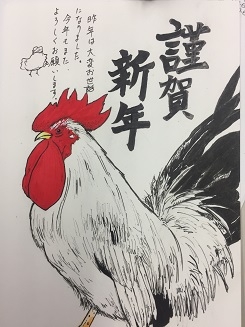 謹賀
新年
昨年は大変お世話
になりました。
今年もまた
よろしくお願いします。